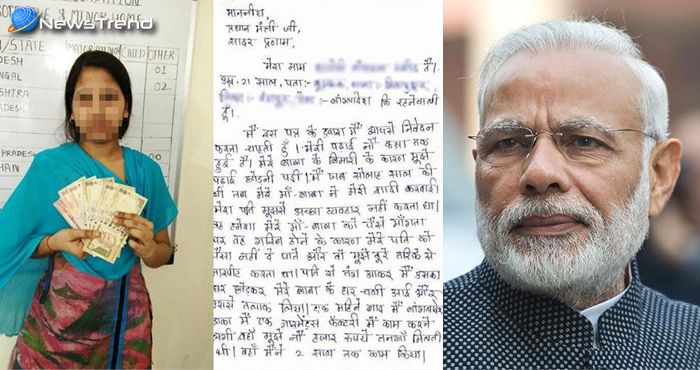 NewsTrend
/STATE
CHILD
OTHER
01
02
PRADESH
माननीय
प्रधान मंत्री जी,
सादर प्रणाम,
मेरा नाम
है।
उम्र- 21 साल, पता:-
बांग्लादेश कि रहनेवाली
हूँ।
मैं इस पत्र के द्वारा मैं आपसे निवेदन
करना चाहती हूँ। मेरी पढ़ाई नौ कक्षा तक
हुई है। मेरे बाबा के बिमारी के कारण मुझे
पढ़ाई छोडनी पडी। मैं जब सोलह साल की
थी तब मेरे माँ-बाबा ने मेरी शादी करवादी।
मेरा पति मुझसे अच्छा व्यवहार नहीं करता था।
वह हमेशा मेरे माँ-बाबा को पैसे माँगता
पर वह गरिब होने के कारण मेरे पति को
पैसा नहीं दे पाते और वो मुझे बुरे तरिके से
मारपीट करता था। पति से तंग आकर मैं उसका
घर छोडकर मेरे बाबा के घर चली आई और
उससे तलाक लिया। एक महिने बाद में बांग्लादेश
ढाका में एक गारमेंट्स फॅक्टरी में काम करने
लगी वहाँ मुझे नौ हजार रुपये तनखाँ मिलती
थी। वहाँ मैंने 2 साल तक काम किया।